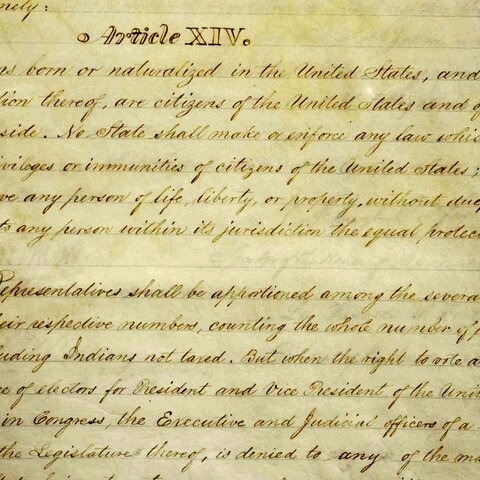 nely:
Article XIV.
ns born or naturalized in the United States, and
tion thereof, are citizens of the United States and of
side. No State shall make or enforce any law whic
ivileges or immunities of citizens of the United States;
ve any person of life, liberty, or property, without due
to any person within its jurisdiction the equal protec
Representatives shall be apportioned among the severa
eir respective numbers, counting the whole number of p
luding Indians not taxed. But when the right to vote a
ce of electors for President and Vice President of the Unit
in Congress, the Executive and Judicial officers of a
the Legislature thereof, is denied to any of the ma